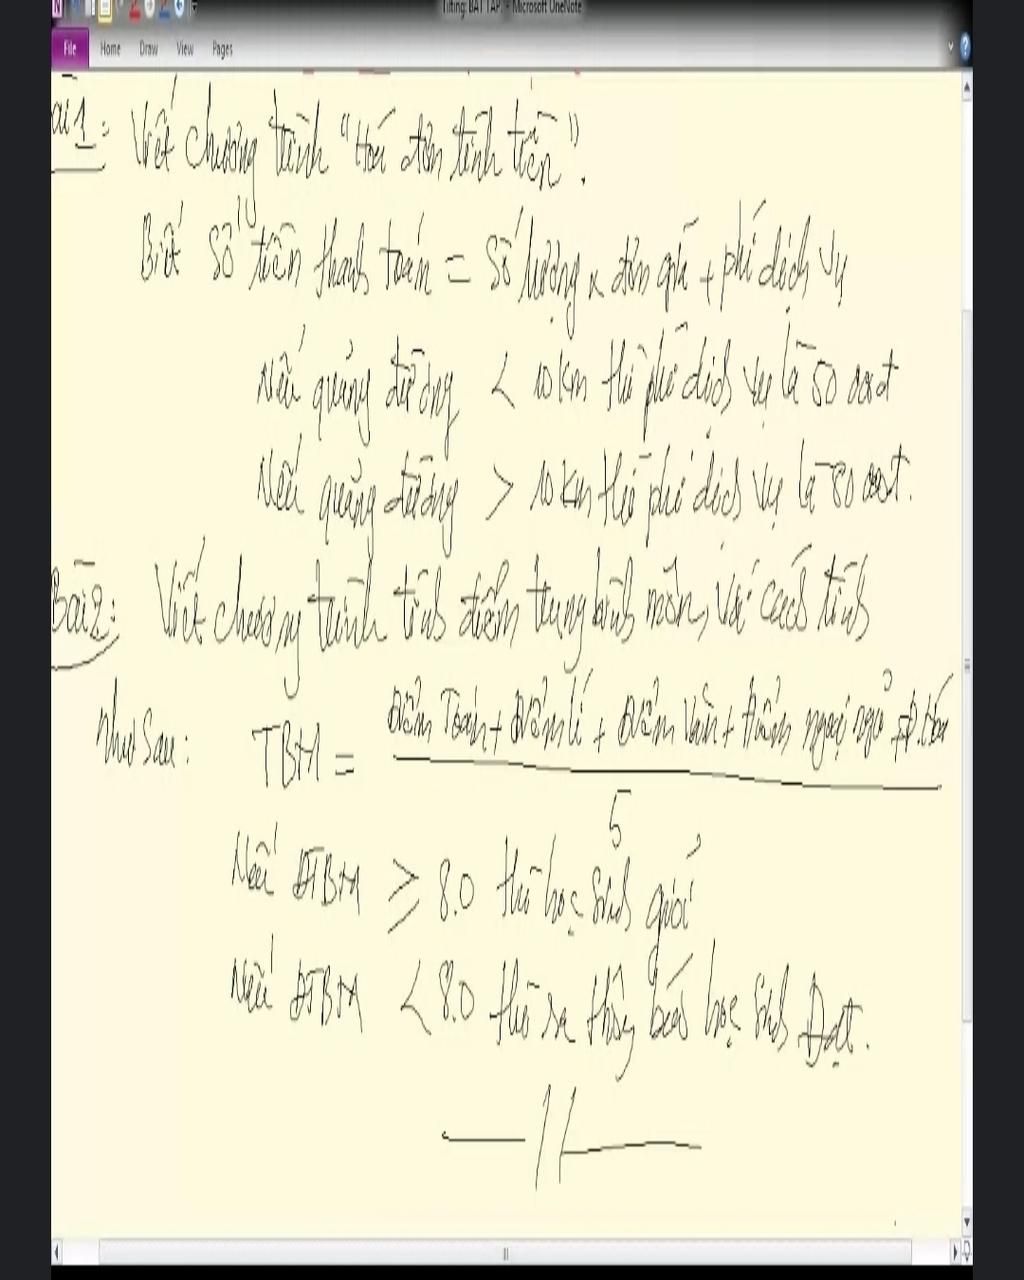 Titing: BAT TAP. - Microsoft OneNote
File Home Draw View Pages
ài 1: Viết chương trình "Hoá đơn tính tiền".
Biết số tiền thanh toán = Số lượng x đơn giá + phí dịch vụ
Nếu quãng đường < 10 km thì phí dịch vụ là 50 000đ
Nếu quãng đường > 10 km thì phí dịch vụ là 80 000đ.
Bài 2: Viết chương trình tính điểm trung bình môn, với cách tính
như sau: TBM = Điểm Toán + Điểm lí + Điểm Văn + Điểm ngoại ngữ + Đ. Hóa
5
Nếu ĐTBM ≥ 8.0 thì học sinh giỏi
Nếu ĐTBM < 8.0 thì ra thông báo học sinh Đạt.